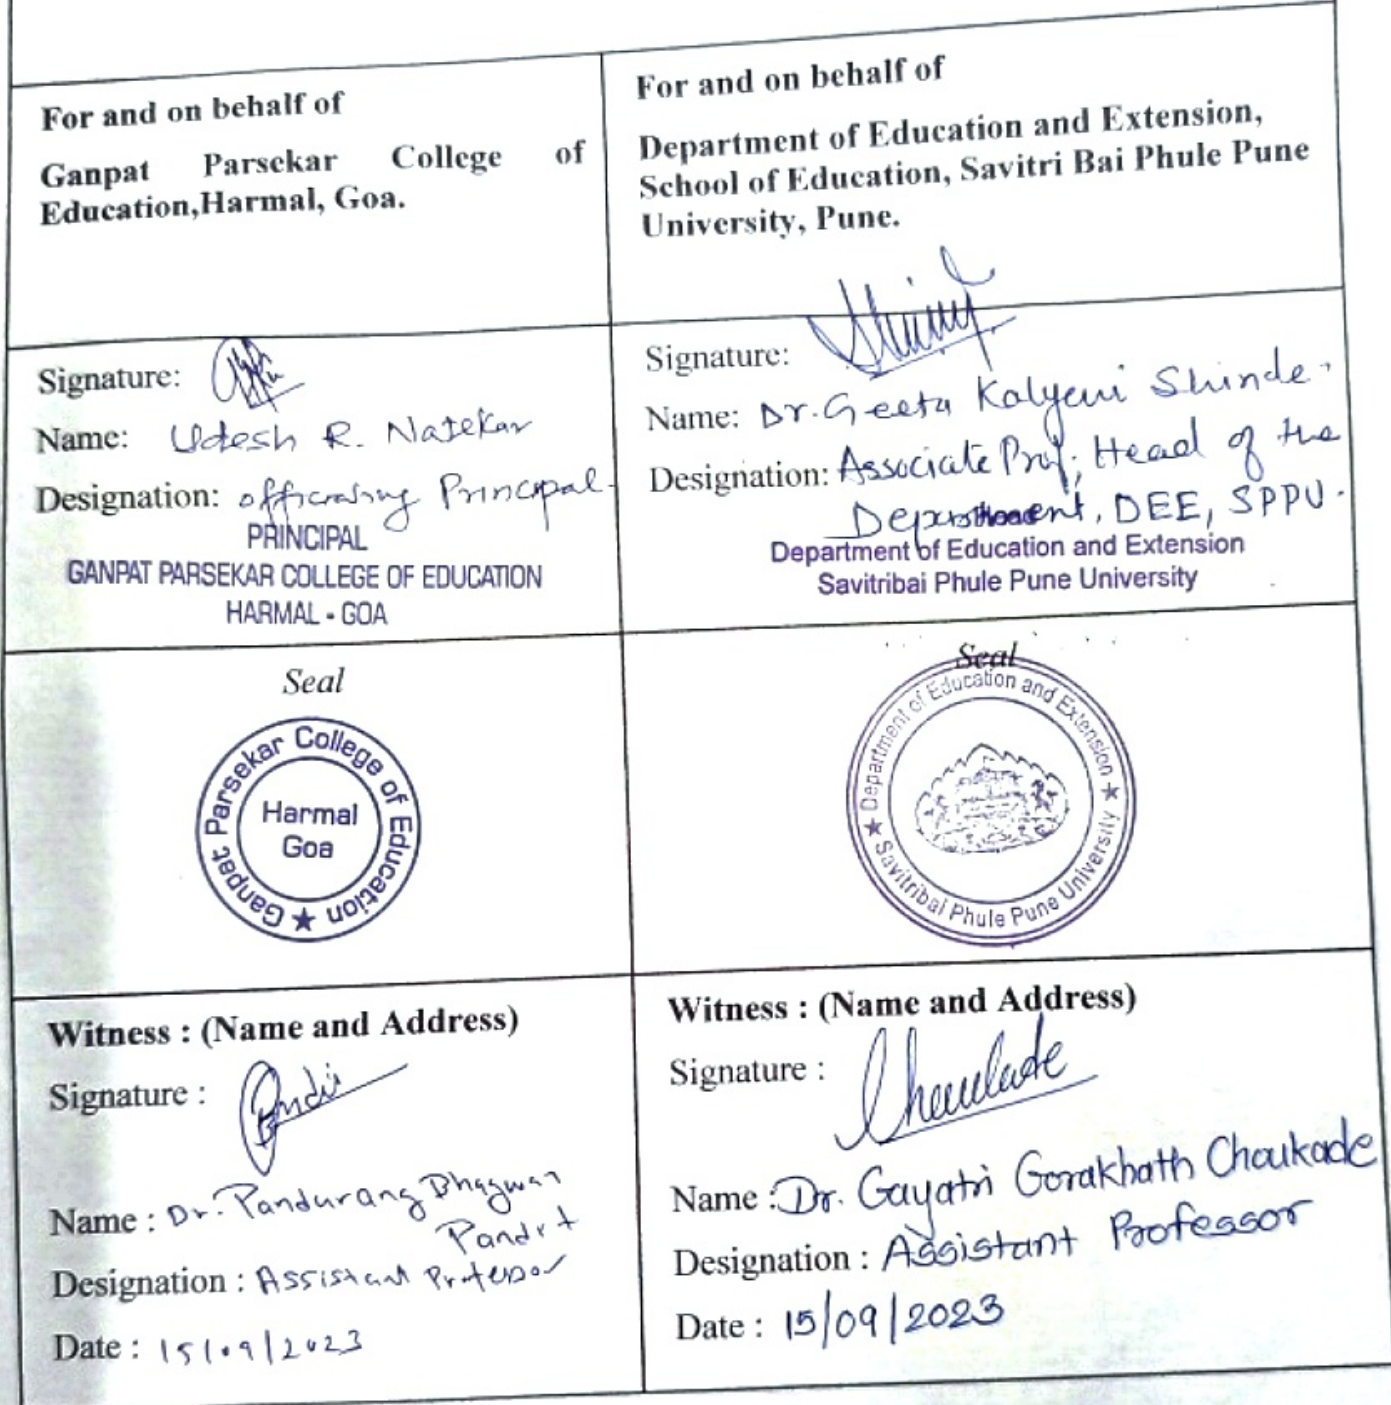 For and on behalf of
Ganpat Parsekar College of
Education,Harmal, Goa.
Signature:
Name: Udesh R. Natekar
Designation: officiating Principal
PRINCIPAL
GANPAT PARSEKAR COLLEGE OF EDUCATION
HARMAL - GOA
Seal
Ganpat Parsekar College of Education
Harmal
Goa
Witness : (Name and Address)
Signature :
Name : Dr. Pandurang Bhagwan
Pandit
Designation : Assistant Professor
Date : 15/09/2023
For and on behalf of
Department of Education and Extension,
School of Education, Savitri Bai Phule Pune
University, Pune.
Signature:
Name: Dr. Geeta Kalyani Shinde.
Designation: Associate Prof; Head of the
Department, DEE, SPPU.
Department of Education and Extension
Savitribai Phule Pune University
Seal
Department of Education and Extension
Savitribai Phule Pune University
Witness : (Name and Address)
Signature : Choukade
Name : Dr. Gayatri Gorakhath Choukade
Designation : Assistant Professor
Date : 15/09/2023